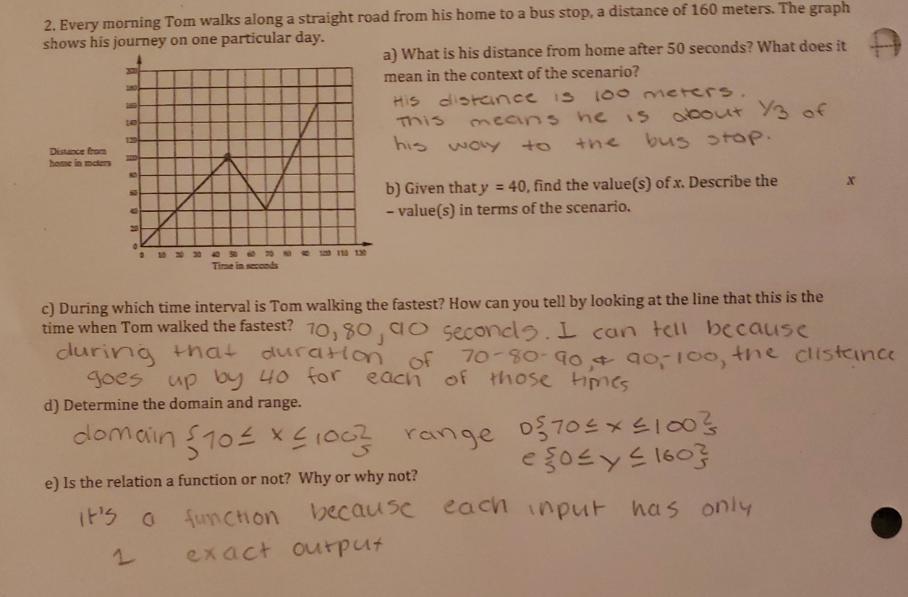 2. Every morning Tom walks along a straight road from his home to a bus stop, a distance of 160 meters. The graph
shows his journey on one particular day.
a) What is his distance from home after 50 seconds? What does it
mean in the context of the scenario?
His distance is 100 meters.
This means he is about 1/3 of
his way to the bus stop.
200
180
160
140
120
100
80
60
40
20
0
Distance from
home in meters
0 10 20 30 40 50 60 70 80 90 100 110 120
Time in seconds
b) Given that y = 40, find the value(s) of x. Describe the x
– value(s) in terms of the scenario.
c) During which time interval is Tom walking the fastest? How can you tell by looking at the line that this is the
time when Tom walked the fastest? 70, 80, 90 seconds. I can tell because
during that duration of 70-80-90, & 90-100, the distance
goes up by 40 for each of those times
d) Determine the domain and range.
domain {70 ≤ x ≤ 100} range D{70 ≤ x ≤ 100}
e {0 ≤ y ≤ 160}
e) Is the relation a function or not? Why or why not?
it's a function because each input has only
1 exact output